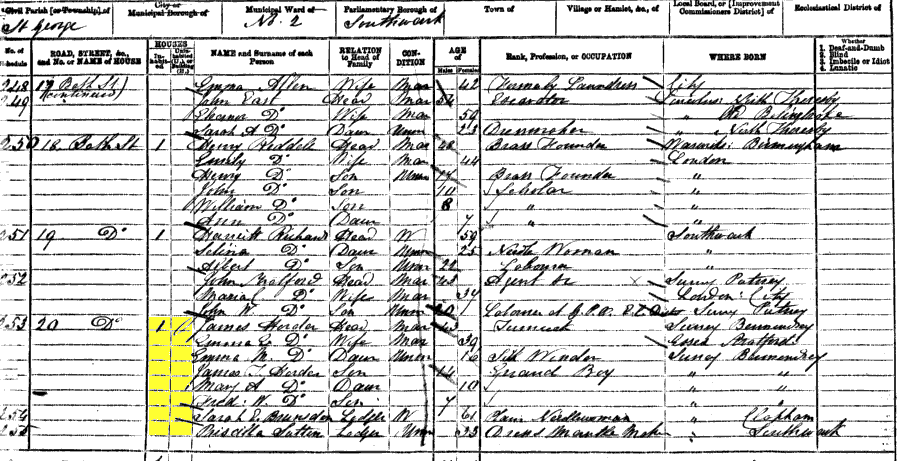 Civil Parish [or Township] of
St George
City or
Municipal Borough of
Municipal Ward of
No. 2
Parliamentary Borough of
Southwark
Town of
Village or Hamlet, &c., of
Local Board, or [Improvement
Commissioners District] of
Ecclesiastical District of
No. of
Schedule
ROAD, STREET, &c.,
and No. or NAME of HOUSE
HOUSES
NAME and Surname of each
Person
RELATION
to Head of
Family
CON-
DITION
AGE
Males Females
Rank, Profession, or OCCUPATION
WHERE BORN
Whether
1. Deaf-and-Dumb
2. Blind
3. Imbecile or Idiot
4. Lunatic
248 17 Bath St Emma Allen Wife Mar 42 Formerly Laundress City
249 (continued) John East Head Mar 54 Excavator North Thoresby
Eleanor Do Wife Mar 59
Sarah A Do Daur Unm 23 Dressmaker " North Thoresby
250 18 Bath St 1 Henry Head Mar 48 Brass Founder Birmingham
Emily Do Wife Mar 44 London
Henry Do Son Unm 17 Brass Founder "
John Do Son 10 Scholar "
William Do Son 8 " "
Ann Do Daur 7 " "
251 19 Do 1 Harriett Richards Head W 59 Southwark
Selina Do Daur Unm 25 Needle Woman "
Albert Do Son Unm 22 Labourer "
252 John Head Mar Agent Surrey Putney
Maria Do Wife Mar 39 London City
John W Do Son Unm 20 G.P.O. Surrey Putney
253 20 Do 1 James Horder Head Mar 43 Surrey Bermondsey
Emma Do Wife Mar 39 Essex Stratford
Emma M. Do Daur Unm 16 Silk Winder Surrey Bermondsey
James T. Horder Son 14 Errand Boy " "
Mary A Do Daur 10 " "
Fred: W. Do Son 7 " "
254 Sarah E Lodger W 61 Plain Needlewoman " Clapham
255 Priscilla Sutton Lodger Unm 33 Dress Mantle " Southwark